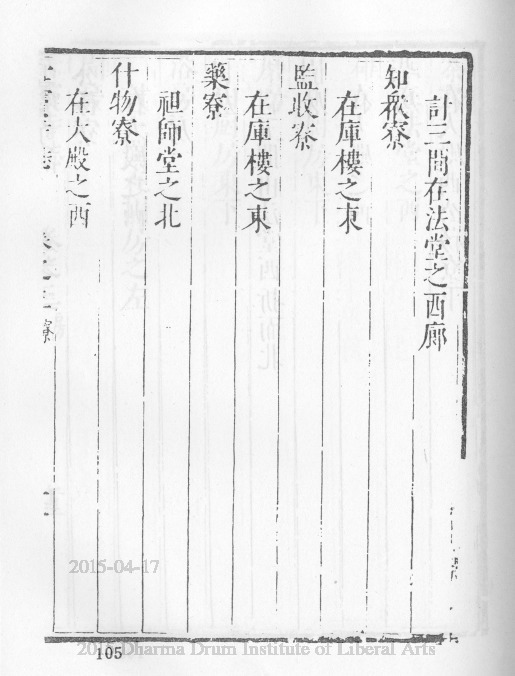 計三間在法堂之西廊
知眾寮
在庫樓之東
監收寮
在庫樓之東
藥寮
祖師堂之北
什物寮
在大殿之西
寮
2015-04-17
105
Dharma Drum Institute of Liberal Arts